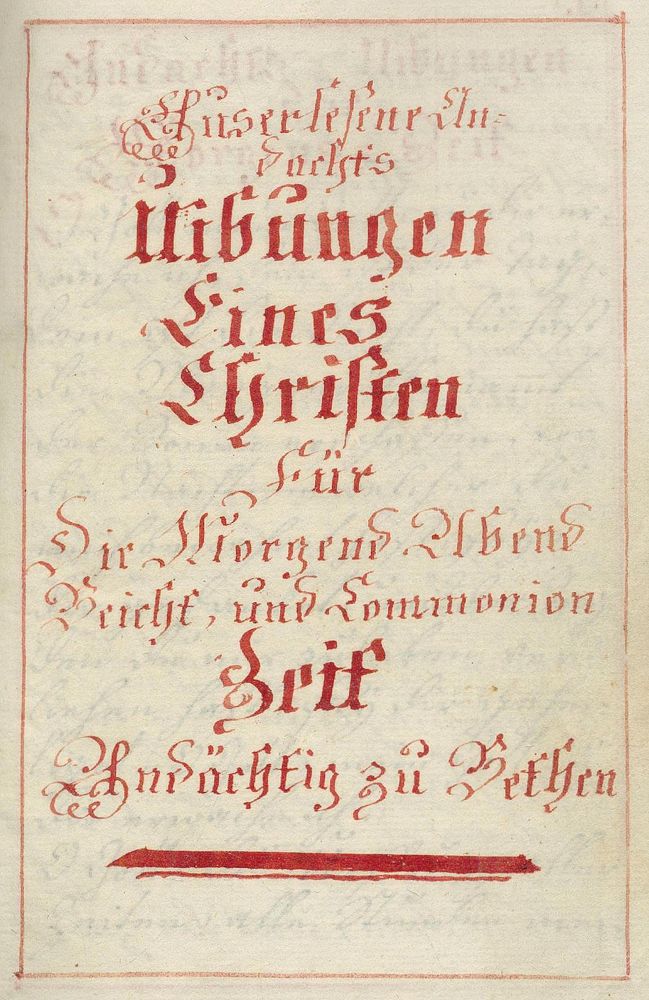 Auserlesene An-
dachts
Uibungen
Eines
Christen
Für
Die Morgend Abend
Beicht, und Commonion
Zeit
Andächtig zu Bethen